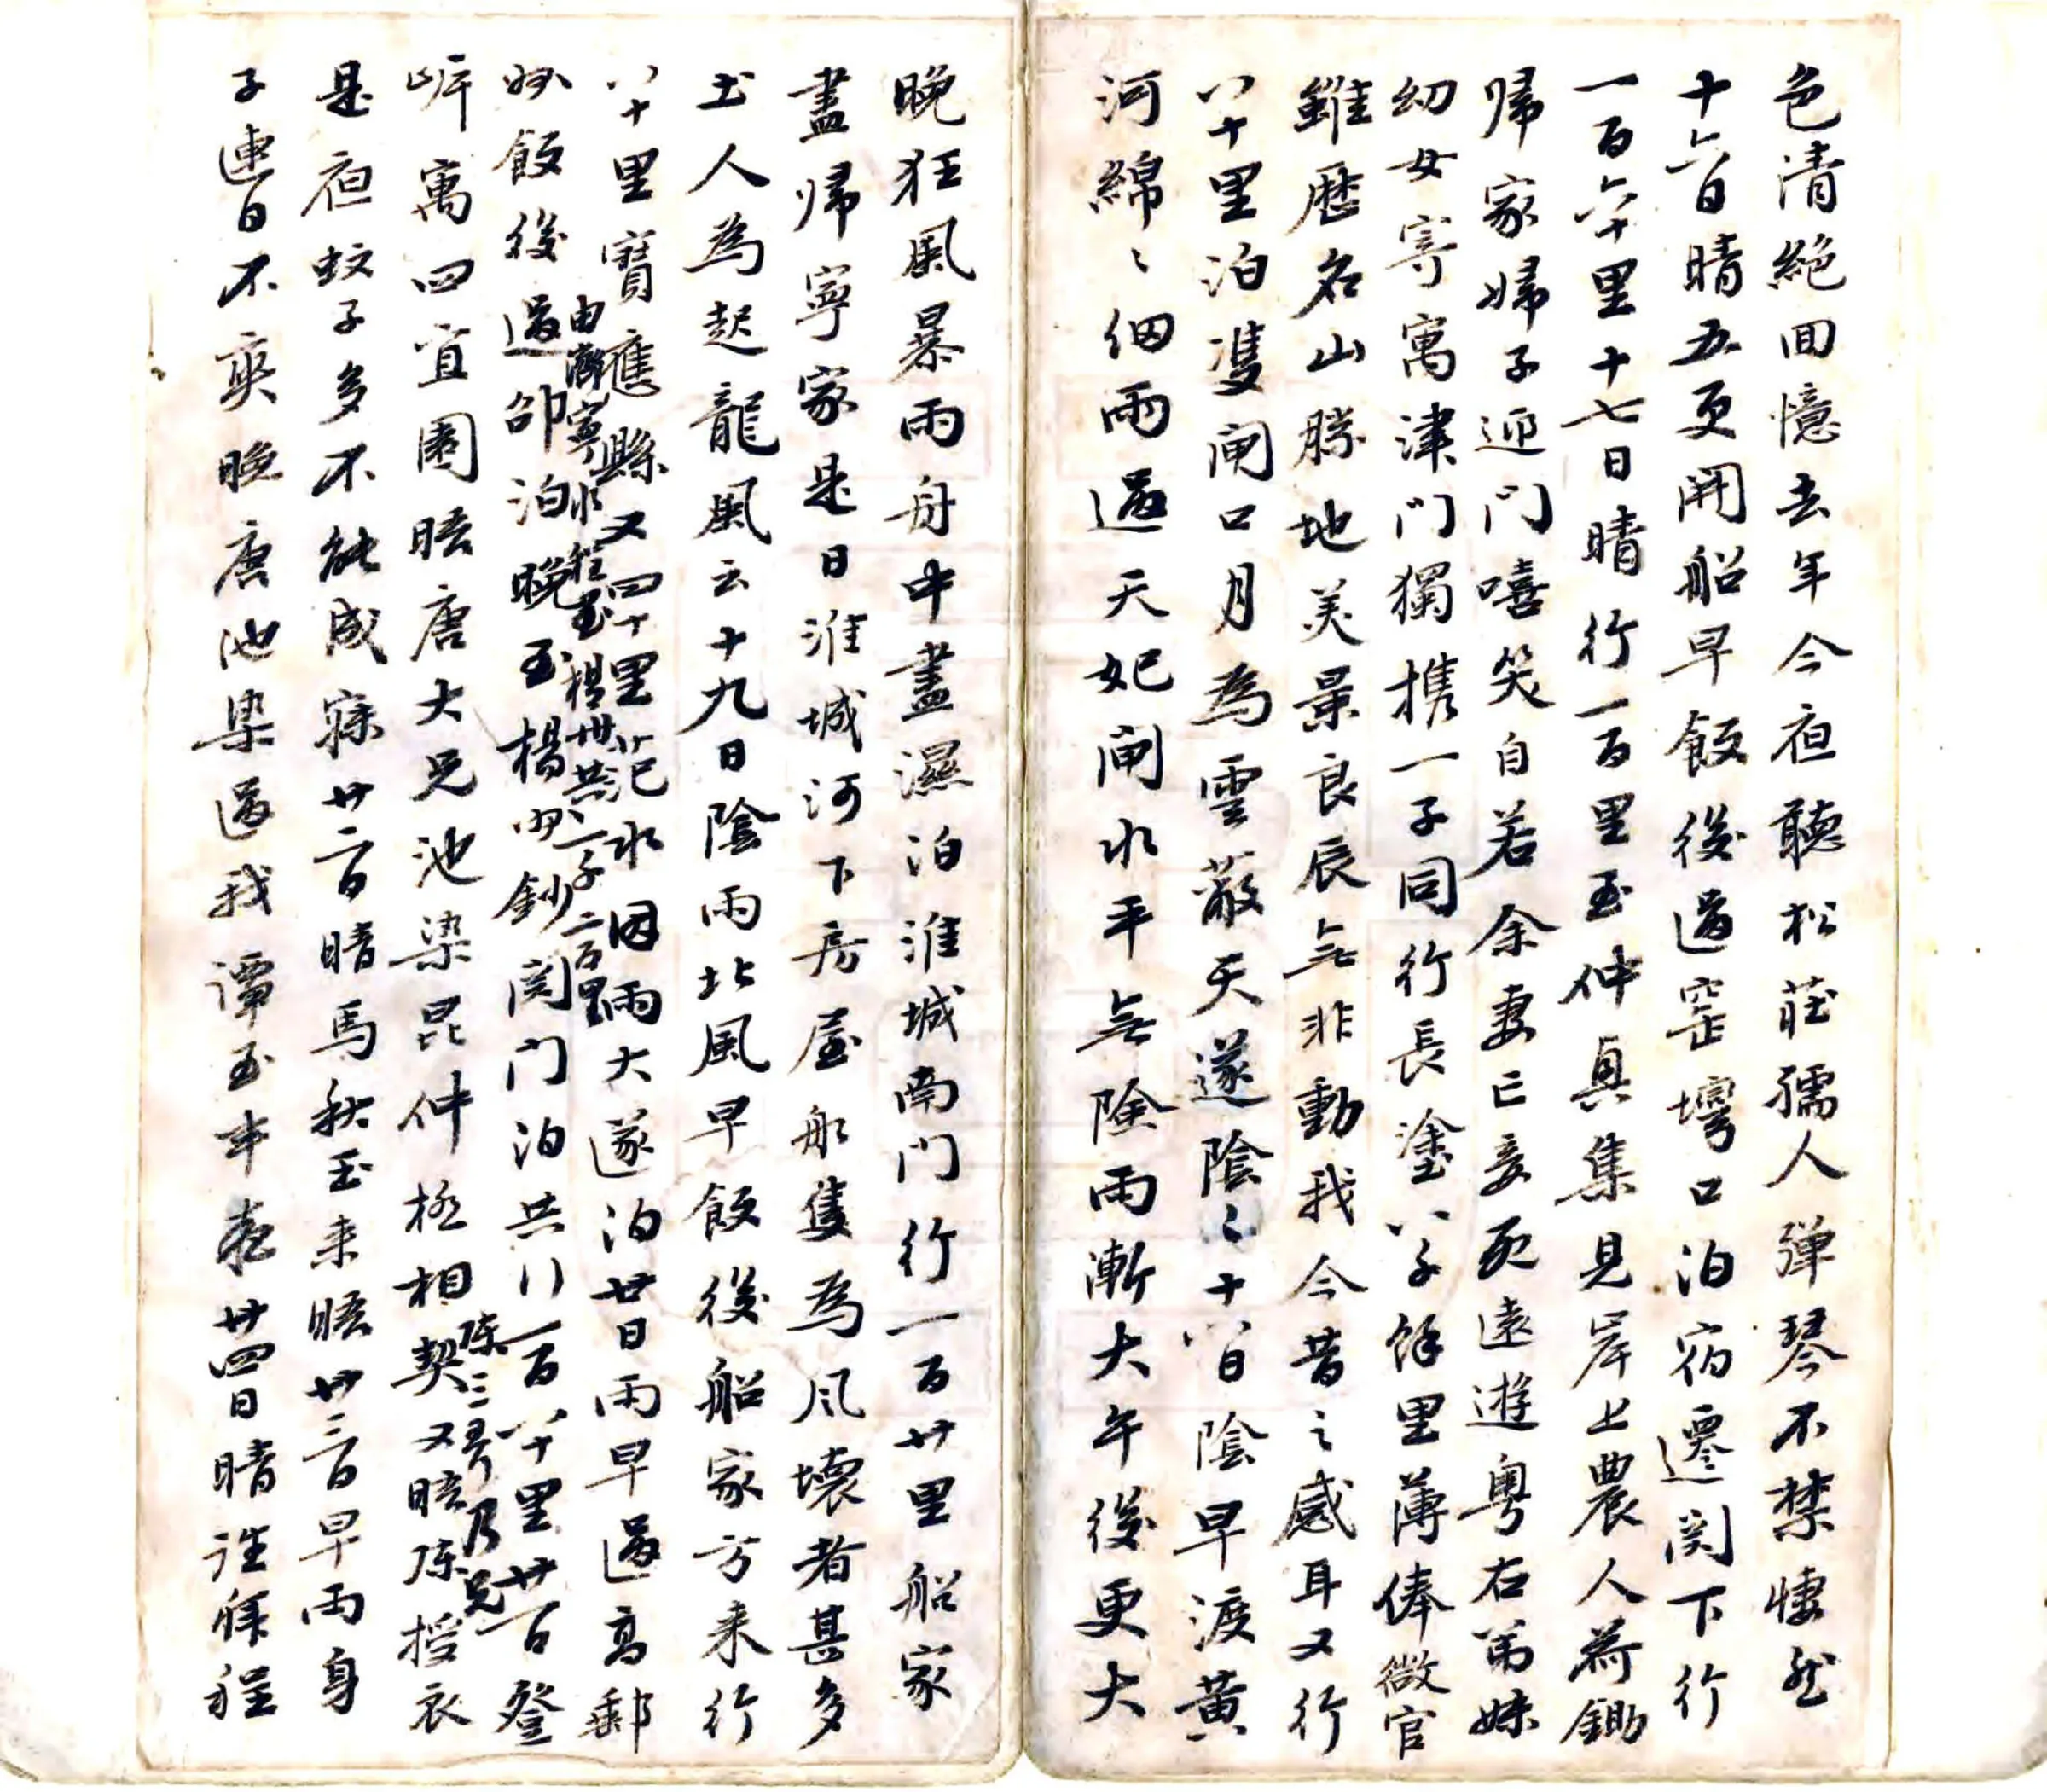 色清絕回憶去年今夜聽松莊孺人彈琴不禁悽然
十六日晴五更開船早飯後過窑灣口泊宿遷関下行
一百六十里十七日晴行一百里至仲興集見岸上農人荷鋤
歸家婦子迎门嘻笑自若余妻亡妾死遠遊粵右弟妹
幼女寄寓津门獨攜一子同行長塗八千餘里薄俸微官
雖歷名山勝地美景良辰無非動我今昔之感耳又行
八十里泊雙閘口月為雲蔽天遂陰〻十八日陰早渡黃
河綿〻細雨過天妃閘水平無險雨漸大午後更大
晚狂風暴雨舟中盡濕泊淮城南门行一百廿里船家
盡歸寧家是日淮城河下房屋船隻為风壞者甚多
土人為起龍風云十九日陰雨北風早飯後船家方来行
八十里寶應縣又四十里范水因雨大遂泊廿日雨早過高郵
州飯後過邵泊晚至楊州鈔関门泊共行一百八十里廿一日登
由濟寧水程至楊州共一千二百里
岍寓四宜園晤唐大兄池染昆仲極相契又晤陈授衣
陈三琴乃兄
是夜蚊子多不能成寐廿二日晴馬秋玉来晤廿三日早雨身
子連日不爽晚唐池染過我譚至半夜廿四日晴往拜程